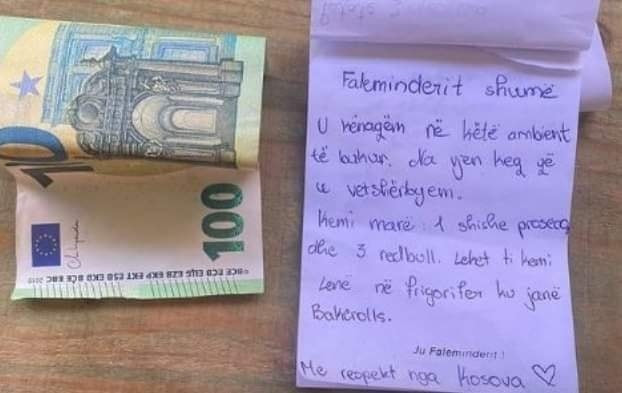 Faleminderit shumë
U kënaqëm në këtë ambient
të bukur. Na vjen keq që
u vetshërbyem.
Kemi marë: 1 shishe prosecco
dhe 3 redbull. Lekët ti kemi
Lënë në frigorifer ku janë
Bakerolls.
Ju Faleminderit !
Me respekt nga Kosova ♡
100
100
BCE ECB ЕЦБ EZB EKP EKT ESB EKB BĊE EBC